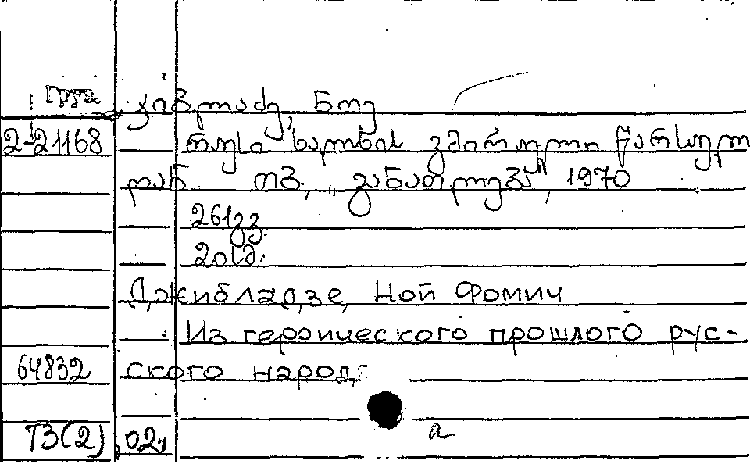 ჯიბლაძე, ნოე
2-21168 რუსი ხალხის გმირული წარსულ
იდან თბ., „განათლება", 1970
261გვ.
20სმ.
Джибладзе, Ной Фомич
Из героического прошлого рус-
64832 ского народа
T3(2) 02, а